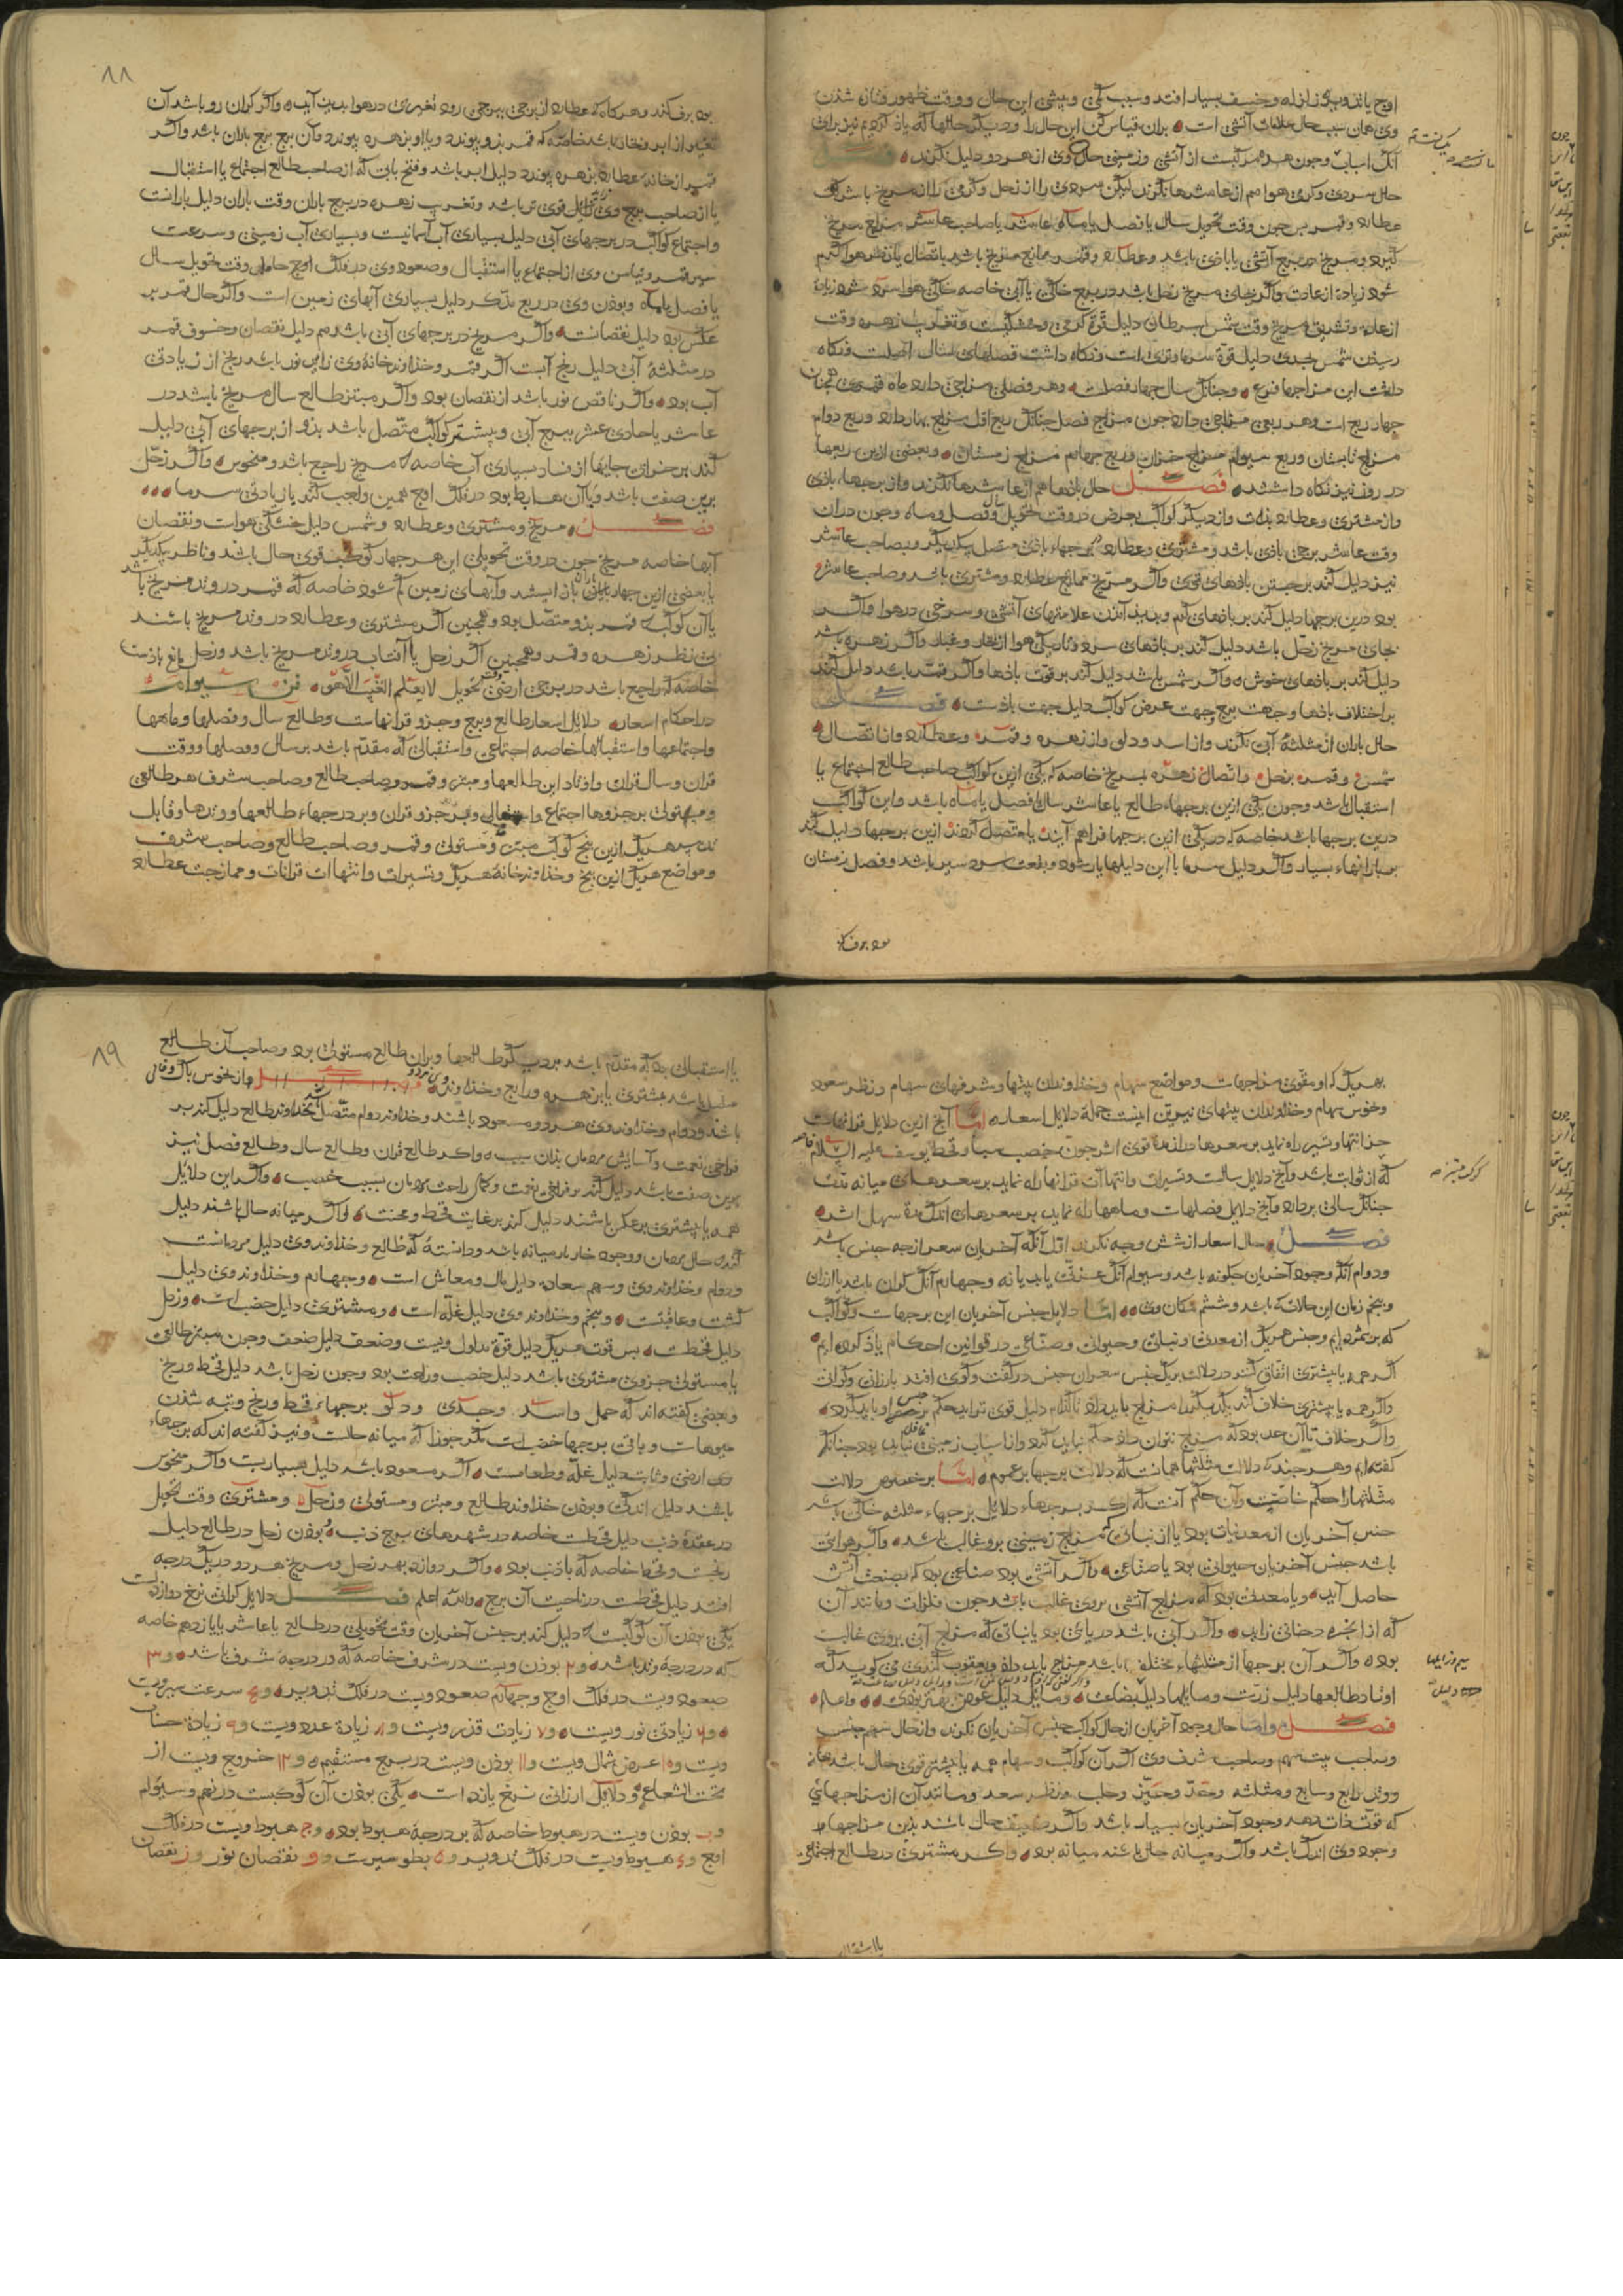 اوج یا تدویر زلزله و خسف بسیار افتد و سبب کمی و بیشی این حال و وقت ظهور و فنا شدن
وی همان سبب حال علامات آتشی است بران قیاس کن این حال را و دیگر حالها که یاد کردیم نیز برای
آنک اسباب وجود هر دو مرکبست از آتشی و زمینی حال وی از هر دو دلیل نگرند فصل
حال سردی و گرمی هوا هم از عاشرها نگرند لیکن سردی را از زحل و گرمی را از مریخ با شرکت
عطارد و قمر پس چون وقت تحویل سال یا فصل یا ماه عاشر یا صاحب عاشر مزاج مریخ
گیرد و مریخ در برج آتشی یا بادی باشد و عطارد و قمر ممازج مریخ باشد باتصال یا نظر هوا گرم
شود زیادة از عادت و اگر بجای مریخ زحل باشد در برج خاکی یا آبی خاصه خاکی هوا سرد شود زیادة
از عادة و تشریق مریخ وقت شمس بسرطان دلیل قوة گرمی و خشکیست و تغریب زهره وقت
رسیدن شمس بجدی دلیل قوة سرما و تری است و نگاه داشت فصلهای سال اصلست و نگاه
داشت این مزاجها فرع و چنانک سال چهار فصلست و هر فصلی مزاجی دارد ماه قمری همچنان
چهار ربع است و هر ربعی مزاجی دارد چون مزاج فصل چنانک ربع اول مزاج بهار دارد و ربع دوام
مزاج تابستان و ربع سیوام مزاج خزان و ربع چهارم مزاج زمستان و بعضی ازین ربعها
در روز نیز نگاه داشتند فصل حال بادها هم از عاشرها نگرند و از برجهاء بادی
و از مشتری و عطارد بذات و از دیگر کواکب بعرض در وقت تحویل سال و فصل و ماه و چون دران
وقت عاشر برجی بادی باشد و مشتری و عطارد در برجهاء بادی متصل بیکدیگر و بصاحب عاشر
نیز دلیل کند بر جستن بادهای قوی و اگر مریخ ممازج عطارد و مشتری باشد و صاحب عاشر
بود درین برجها دلیل کند بر بادهای گرم و پدید آمدن علامتهای آتشی و سرخی در هوا و اگر
بجای مریخ زحل باشد دلیل کند بر بادهای سرد و تاریکی هوا از بخار و غبار و اگر زهره باشد
دلیل کند بر بادهای خوش و اگر شمس باشد دلیل کند بر قوت بادها و اگر قمر باشد دلیل کند
بر اختلاف بادها و جهت برج و جهت عرض کواکب دلیل جهت بادست فصل
حال باران از مثلثهٔ آبی نگرند و از اسد و دلو و از زهره و قمر و عطارد و از اتصال
شمس و قمر بزحل و اتصال زهره بمریخ خاصه که یکی ازین کواکب صاحب طالع اجتماع یا
استقبال باشد و چون یکی ازین برجهاء طالع یا عاشر سال یا فصل یا ماه باشد و این کواکب
درین برجها باشد خاصه که در یکی ازین برجها فراهم آیند یا متصل گردند ازین برجها دلیل کند
بر بارانهاء بسیار و اگر دلیل سرما با این دلیلها یار شود و بلعت سرد سیر باشد و فصل زمستان
بود برف کند
۸۸
بود برف کند و هر گاه که عطارد از برجی ببرجی رود تغیری در هوا پدید آید و اگر گران رو باشد آن
تغیر از ابر و دخان باشد خاصه که قمر بذو پیوندد و یا او بزهره پیوندد و آن برج برج باران باشد و اگر
قمر از خانه عطارد بزهره پیوندد دلیل ابر باشد و فتح بابی که از صاحب طالع اجتماع یا استقبال
یا از صاحب برج وی کند دلیل قوی تر باشد و تغریب زهره در برج باران وقت باران دلیل بارانست
و اجتماع کواکب در برجهای آبی دلیل بسیاری آب آسمانیست و بسیاری آب زمینی و سرعت
سیر قمر و تیاسر وی از اجتماع یا استقبال و صعود وی در فلک اوج حامل وقت تحویل سال
یا فصل یا ماه و بودن وی در ربع مذکر دلیل بسیاری آبهای زمین است و اگر حال قمر بر
عکس بود دلیل نقصانست و اگر مریخ در برجهای آبی باشد هم دلیل نقصان و خسوف قمر
در مثلثهٔ آبی دلیل رنج آبست اگر قمر و خذاوند خانهٔ وی زاید نور باشد رنج از زیادتی
آب بود و اگر ناقص نور باشد از نقصان بود و اگر مبتز طالع سال مریخ باشد در
عاشر یا حادی عشر ببرج آبی و بیشتر کواکب متصل باشد بذو از برجهای آبی دلیل
کند بر خرابی جایها از فساد بسیاری آب خاصه که مریخ راجع باشد و منحوس و اگر زحل
برین صفت باشد و با آن هابط بود در فلک اوج همین واجب کند با زیادتی سرما
فصل مریخ و مشتری و عطارد و شمس دلیل خشکی هواست و نقصان
آبها خاصه مریخ چون در وقت تحویلی این هر چهار کوکب قوی حال باشد و ناظر بیکدیگر
یا بعضی ازین چهار باران باز ایستد و آبهای زمین کم شود خاصه که قمر در وتد مریخ باشد
یا آن کوکب که قمر بذو متصل بود و همچنین اگر مشتری و عطارد در وتد مریخ باشند
بی نظر زهره و قمر و همچنین اگر زحل یا آفتاب در وتد مریخ باشد و زحل مانع بادست
خاصه که راجع باشد در برجی ارضی وقت تحویل لا یعلم الغیب الا هو فن سیوام
در احکام اسعار دلایل اسعار طالع و برج و جزو قرانهاست و طالع سال و فصلها و ماهها
و اجتماعها و استقبالها خاصه اجتماعی و استقبالی که مقدم باشد بر سال و فصلها و وقت
قران و سال قران و اوتاد این طالعها و مبتز و قمر و صاحب طالع و صاحب شرف هر طالعی
و مستولی بر جزوها اجتماع و استقبال و بر جزو قران و بر درجهاء طالعها و وتدها و قابل
تدبیر هر یک ازین پنج کوکب مبتز و مستولی و قمر و صاحب طالع و صاحب شرف
و مواضع هر یک ازین پنج و خذاوند خانهٔ هر یک و تسیرات و انتهاآت قرانات و ممازجت عطارد
بهر یک که او مقوی مزاجهاست و مواضع سهام و خذاوندان بیتها و شرفهای سهام و نظر سعود
و نحوس بسهام و خذاوندان بیتهای نیرین اینست جملهٔ دلایل اسعار اما آنچ ازین دلایل قرانهاست
جز انتها و تسیر راه نماید بر سعرها دراز مدة قوی اثر چون خصب سبا و قحط یوسف علیه السلام خاصه
که از ثوابت باشد و آنچ دلایل سالست و تسیرات و انتهاآت قرانها راه نماید بر سعرهای میانه مدت
چنانک سالی بردارد و آنچ دلایل فصلهاست و ماهها راه نماید بر سعرهای اندک مدة سهل اثر
فصل حال اسعار از شش وجه نگرند اول آنکه آخریان سعر از چه جنس باشد
و دوام آنک وجود آخریان چگونه باشد و سیوام آنک عزت یابد یا نه و چهارم آنک گران باشد یا ارزان
و پنجم زمان این حالات که باشد و ششم مکان وی اما دلایل جنس آخریان این برجهاست و کواکب
که برشمردیم و جنس هر یک از معدنی و نباتی و حیوانی و صناعی در قوانین احکام یاذ کرده ایم
اگر همه یا بیشتری اتفاق کنند در دلالت بر یک جنس سعر آن جنس در گفت و گوی افتد بارزانی و گرانی
و اگر همه یا بیشتری خلاف کنند یکدیگر را مزاج باید داد تا کدام دلیل قوی تر آید حکم بر جنس او باید کرد
و اگر خلاف تا آن حد بود که مزاج نتوان داد حکم نباید کرد و از اسباب زمینی غافل نباید بود چنانک
گفته ایم و هر چند که دلالت مثلثها همانست که دلالت برجها بر عموم اما بر خصوص دلالت
مثلثها را حکم خاصست و آن حکم آنست که اگر برجهاء دلایل برجهاء مثلثه خاکی باشد
جنس آخریان از معدنیات بود یا از نباتی که مزاج زمینی برو غالب باشد و اگر هوائی
باشد جنس آخریان حیوانی بود یا صناعی و اگر آتشی بود صناعی بود که بصنعت آتش
حاصل آید و یا معدنی بود که مزاج آتشی بروی غالب باشد چون فلزات و مانند آن
که از ابخره دخانی زاید و اگر آبی باشد دریائی بود یا نباتی که مزاج آبی بروی غالب
بود و اگر آن برجها از مثلثهاء مختلف باشد مزاج باید داد و یعقوب کندی می گوید که
اوتاد طالعها دلیل زریست و مایلها دلیل بضاعت و مایلی دلیل عوض بهتر بودی واعلم
فصل و اما حال وجود آخریان از حال کواکب جنس آخریان نگرند و از حال سهم جنس
و صاحب بیت سهم و صاحب شرف وی اگر آن کواکب و سهام همه یا بیشتر قوی حال باشد بخانه
و وتد رابع و سابع و مثلثه و حد و حیز و حلب و نظر سعد و مانند آن از مزاجهائی
که قوت ذات دهد وجود آخریان بسیار باشد و اگر ضعیف حال باشند بذین مزاجها
وجود وی اندک باشد و اگر میانه حال باشند میانه بود و اگر مشتری در طالع اجتماعی
یا استقبالی
۸۹
یا استقبالی بود که مقدم باشد بر دیگر طالعها و بران طالع مستولی بود و صاحب آن طالع
متصل باشد بمشتری یا بزهره و رابع و خذاوند وی هر دو از نحوس پاک و خالی
باشد و دوام و خذاوند وی هر دو مسعود باشند و خذاوند دوام متصل بخذاوند طالع دلیل کند بر
فراخی نعمت و آسایش مردمان بذان سبب و اگر طالع قران و طالع سال و طالع فصل نیز
برین صفت باشد دلیل کند بر فراخی نعمت و کمال راحت مردمان بسبب خصب و اگر این دلایل
همه یا بیشتری برعکس باشند دلیل کند بر غایت قحط و محنت و اگر میانه حال باشند دلیل
کند که حال مردمان و وجود خاربار میانه باشد و دانسته که طالع و خذاوند وی دلیل مردمانست
و دوام و خذاوند وی و سهم سعادت دلیل مال و معاش است و چهارم و خذاوند وی دلیل
کشت و عاقبتست و پنجم و خذاوند وی دلیل غله است و مشتری دلیل خصبست و زحل
دلیل قحطست پس قوت هر یک دلیل قوة مدلول ویست و ضعف دلیل ضعف و چون مبتز طالعی
یا مستولی جزوی مشتری باشد دلیل خصب و راحت بود و چون زحل باشد دلیل قحط و رنج
و بعضی گفته اند که حمل و اسد و جدی و دلو برجهاء قحط و رنج و تبه شدن
میوهاست و باقی برجها خصبست مگر جوزا که میانه حالست و نیز گفته اند که برجهاء
ارضی و ثابت دلیل غله و طعامست اگر مسعود باشد دلیل بسیاریست و اگر منحوس
باشند دلیل اندکی و بودن خذاوند طالع و مبتز و مستولی و زحل و مشتری وقت تحویل
در عقدهٔ ذنب دلیل قحطست خاصه در شهرهای برج ذنب و بودن زحل در طالع دلیل
رنجست و قحط خاصه که با ذنب بود و اگر دوازده بهر زحل و مریخ هر دو در یک درجه
افتد دلیل قحطست در ناحیت آن برج والله اعلم فصل دلایل گرانی نرخ دوازدست
یکی بودن آن کوکبست که دلیل کند بر جنس آخریان وقت تحویلی در طالع یا عاشر یا یازدهم خاصه
که در درجهٔ وتد باشد و ۲ بودن ویست در شرف خاصه که در درجهٔ شرف باشد و ۳
صعود ویست در فلک اوج و چهارم صعود ویست در فلک تدویر و ۵ سرعت سیر ویست
و ۶ زیادتی نور ویست و ۷ زیادت قدر ویست و ۸ زیادة عدد ویست و ۹ زیادة حساب
ویست و ۱۰ عرض شمال ویست و ۱۱ بودن ویست در برج مستقیم و ۱۲ خروج ویست از
تحت الشعاع و دلایل ارزانی نرخ یازده است یکی بودن آن کوکبست در نهم و سیوام
و ب بودن ویست در هبوط خاصه که بر درجهٔ هبوط بود و ج هبوط ویست در فلک
اوج و د هبوط ویست در فلک تدویر و ه بطو سیرست و و نقصان نور و ز نقصان